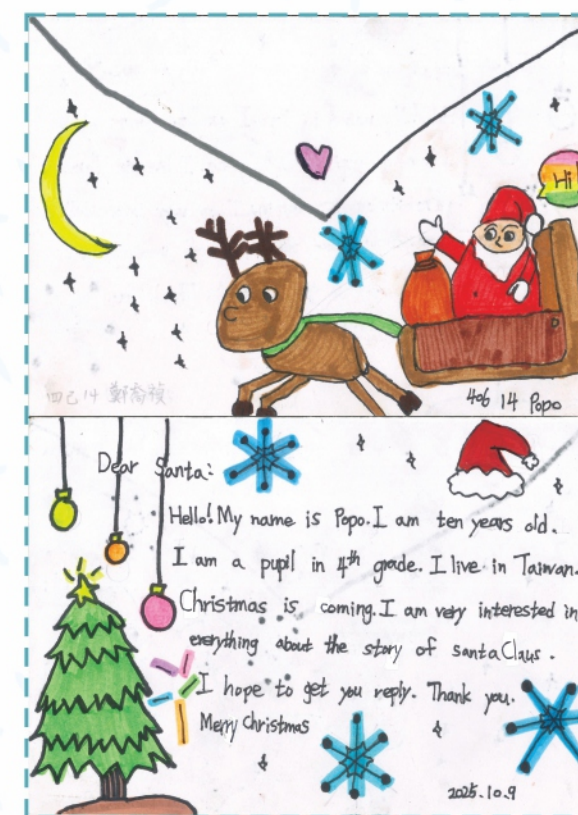 Hi
四己14 鄭喬禎
406 14 Popo
Dear Santa:
Hello! My name is Popo. I am ten years old.
I am a pupil in 4th grade. I live in Taiwan.
Christmas is coming. I am very interested in
everything about the story of santa Claus.
I hope to get you reply. Thank you.
Merry Christmas
2025.10.9